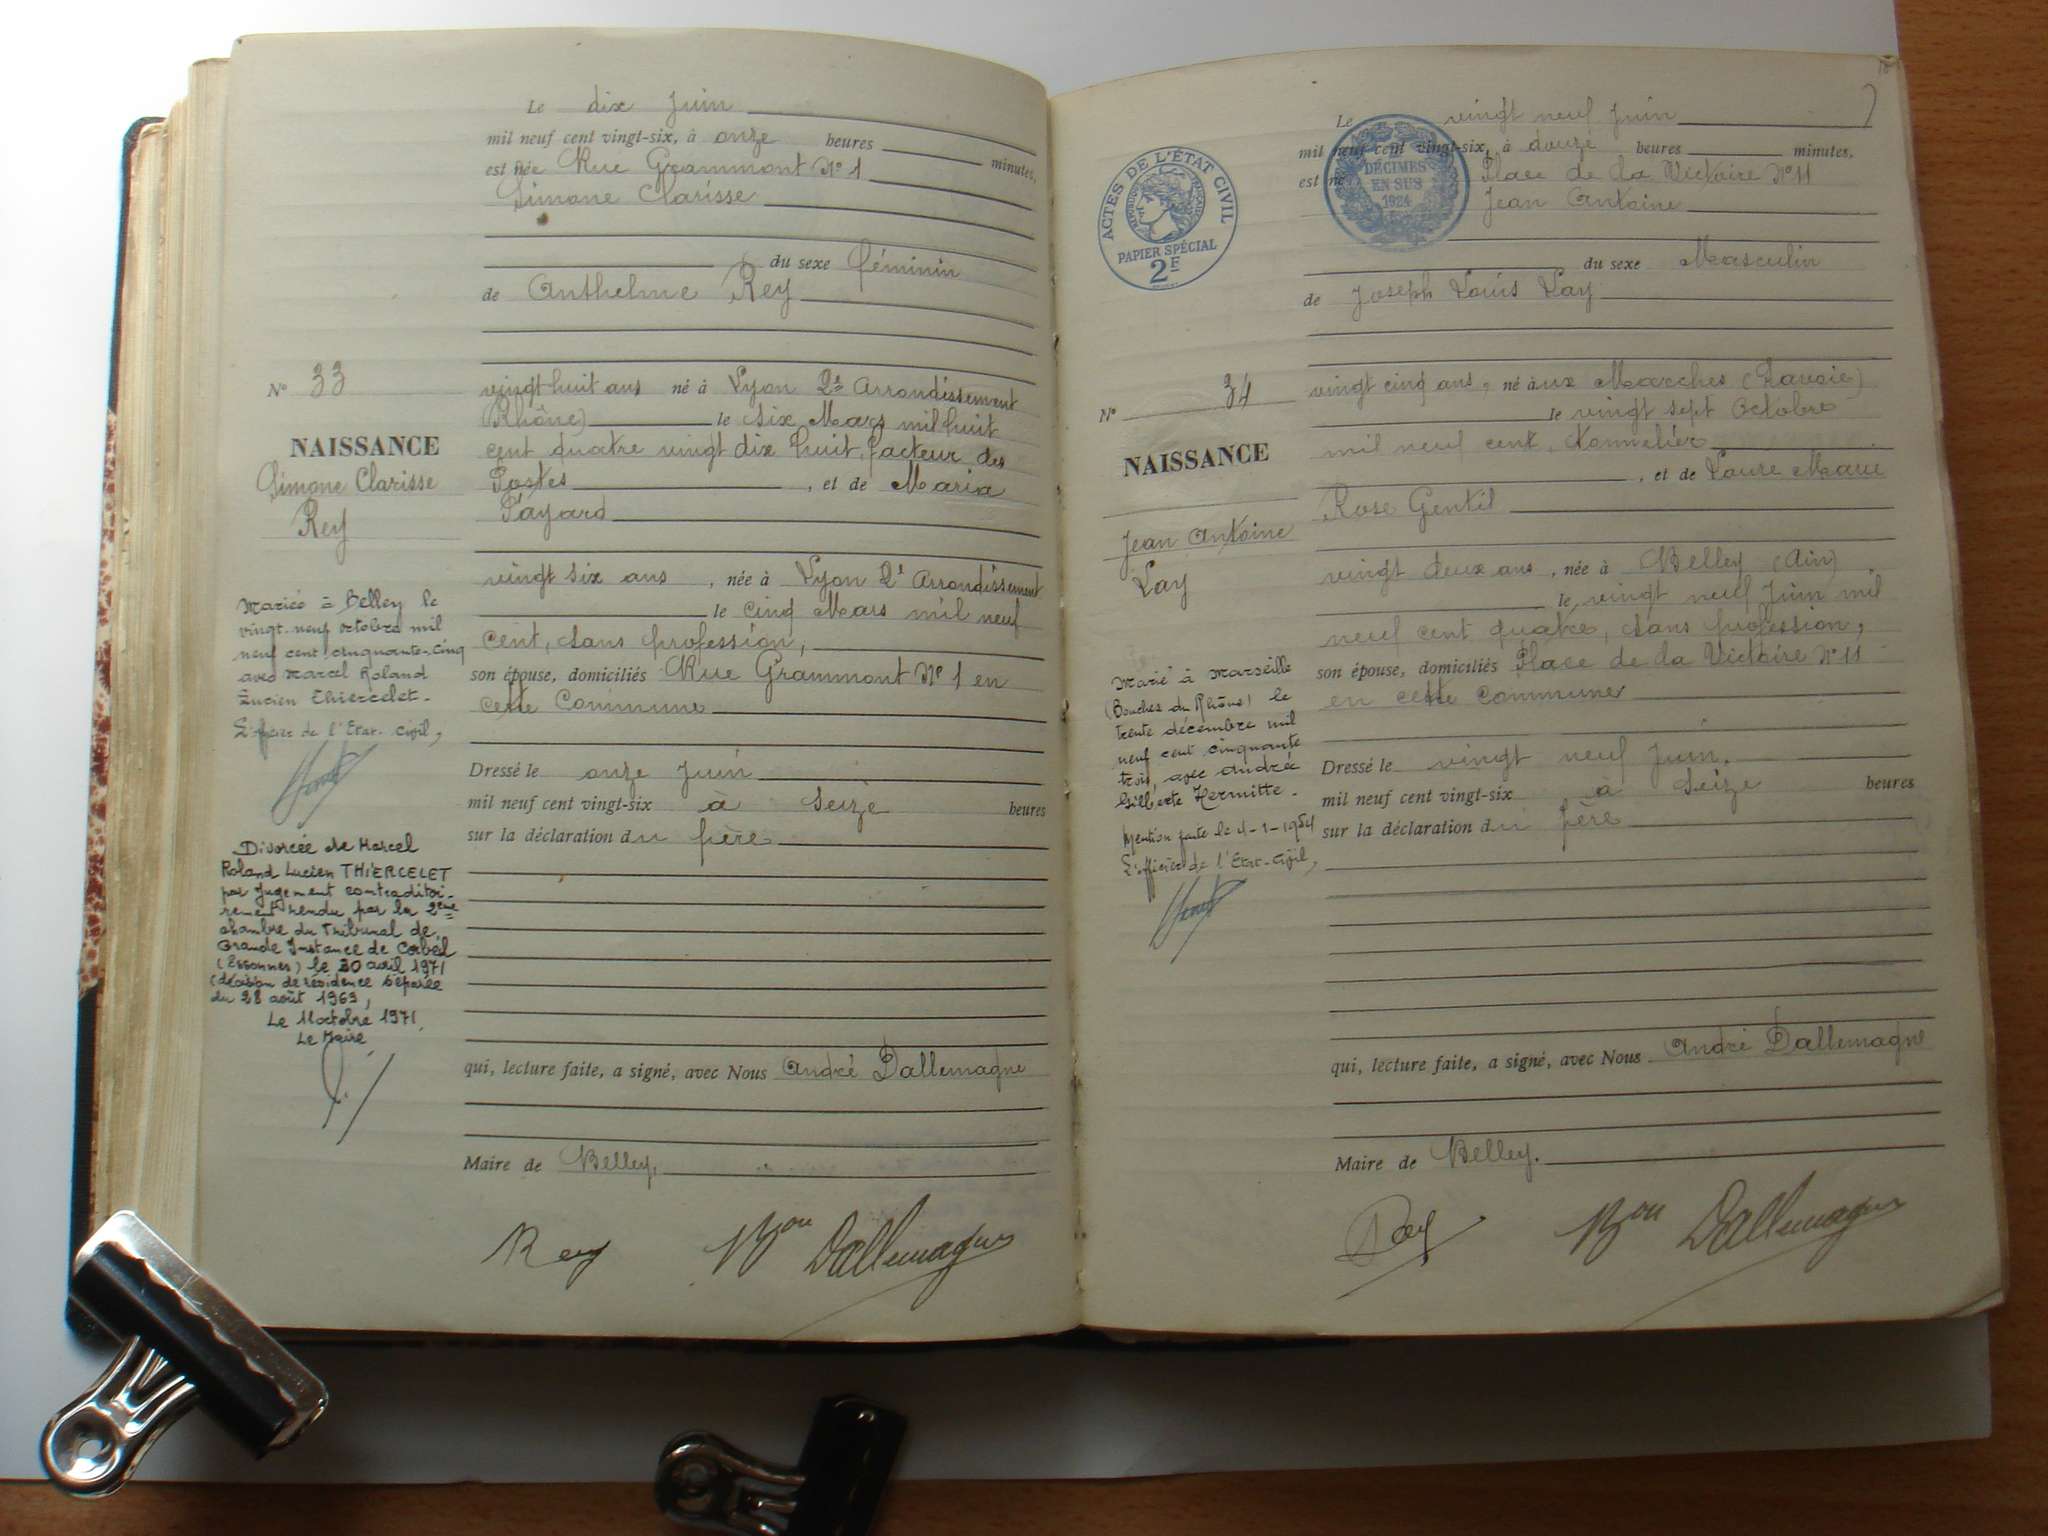 Le dix Juin
mil neuf cent vingt-six, à onze heures minutes,
est née Rue Grammont N° 1
Simone Clarisse
du sexe féminin
de Anthelme Rey
N° 33
vingt huit ans né à Lyon 2e Arrondissement
(Rhône) le six Mars mil huit
cent quatre vingt dix huit, facteur des
Postes, et de Maria
Payard
NAISSANCE
Simone Clarisse
Rey
vingt six ans, née à Lyon 2e Arrondissement
le cinq Mars mil neuf
cent, sans profession,
son épouse, domiciliés Rue Grammont N° 1 en
cette Commune
Mariée à Belley le
vingt-neuf octobre mil
neuf cent cinquante-cinq
avec Marcel Roland
Lucien Thiercelet.
L'officier de l'Etat-civil,
Dressé le onze Juin
mil neuf cent vingt-six à Seize heures
sur la déclaration du père
Divorcée de Marcel
Roland Lucien THIERCELET
par Jugement contradictoi-
rement rendu par la 2ème
chambre du Tribunal de
Grande Instance de Corbeil
(Essonnes) le 30 avril 1971
(décision de résidence séparée
du 28 août 1963,
Le 11 octobre 1971
Le Maire
qui, lecture faite, a signé, avec Nous André Dallemagne
Maire de Belley.
Rey Bon Dallemagne
Le vingt neuf Juin
mil neuf cent vingt-six, à douze heures minutes,
est né Place de la Victoire N° 11
Jean Antoine
ACTES DE L'ÉTAT CIVIL
RÉPUBLIQUE FRANÇAISE
PAPIER SPÉCIAL
2F
DÉCIMES
EN SUS
1924
du sexe Masculin
de Joseph Louis Lay
N° 34
vingt cinq ans, né aux Marches (Savoie)
le vingt sept Octobre
mil neuf cent, tonnelier
, et de Laure Marie
Rose Gentil
NAISSANCE
Jean Antoine
Lay
vingt deux ans, née à Belley (Ain)
le vingt neuf Juin mil
neuf cent quatre, sans profession,
son épouse, domiciliés Place de la Victoire N° 11
en cette Commune
Marié à Marseille
(Bouches du Rhône) le
trente décembre mil
neuf cent cinquante
trois, avec Andrée
Gilberte Hermitte.
Mention faite le 4-1-1954
L'officier de l'Etat-civil,
Dressé le vingt neuf Juin.
mil neuf cent vingt-six à Seize heures
sur la déclaration du père
qui, lecture faite, a signé, avec Nous André Dallemagne
Maire de Belley.
Lay Bon Dallemagne